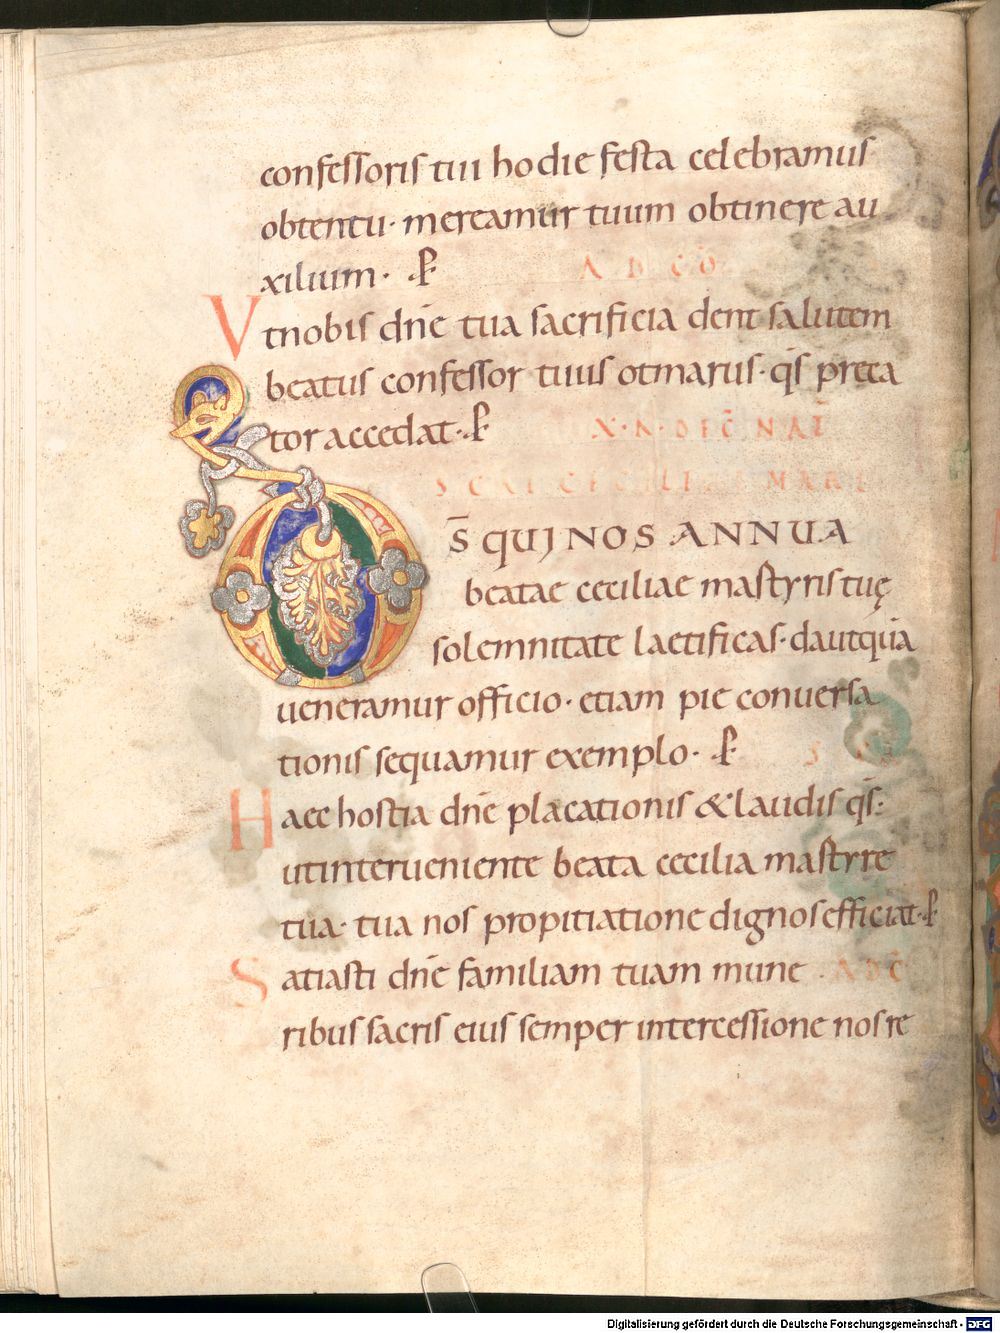 confessoris tui hodie festa celebramus
obtentu· mereamur tuum obtinere au
xilium· ꝑ AD CŌ
Vt nobis dn̄e tua sacrificia dent salutem
beatus confessor tuus otmarus· q̄s preca
tor accedat·ꝑ X·K·DEC̄ NAT̄
SCAE CECILI MAR
DS̄ QUI NOS ANNUA
beatae ceciliae martyris tuę
solemnitate laetificas· da ut quā
ueneramur officio· etiam pie conuersa
tionis sequamur exemplo· ꝑ
Haec hostia dn̄e placationis & laudis q̄s·
ut interueniente beata cecilia martyre
tua· tua nos propitiatione dignos efficiat·ꝑ
Satiasti dn̄e familiam tuam mune AD C̄
ribus sacris eius semper intercessione nos re
Digitalisierung gefördert durch die Deutsche Forschungsgemeinschaft - DFG